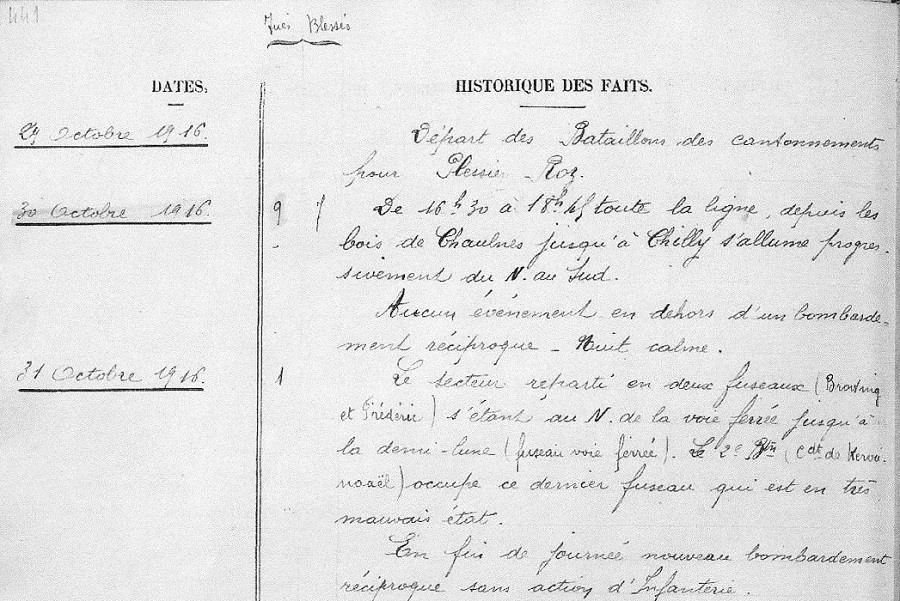 441
Tués Blessés
DATES.
HISTORIQUE DES FAITS.
29 Octobre 1916.
Départ des Bataillons des cantonnements
pour Plessier-Roz.
30 Octobre 1916.
9
De 16h30 à 18h45 toute la ligne, depuis les
bois de Chaulnes jusqu'à Chilly s'allume progres-
sivement du N. au Sud.
Aucun événement en dehors d'un bombarde-
ment réciproque - Nuit calme.
31 Octobre 1916.
1
Le secteur réparti en deux fuseaux (Browning
et Frédéric) s'étant au N. de la voie ferrée jusqu'à
la demi-lune (fuseau voie ferrée). Le 2e Btn (Cdt de Kervé-
noaël) occupe ce dernier fuseau qui est en très
mauvais état.
En fin de journée nouveau bombardement
réciproque sans action d'Infanterie.